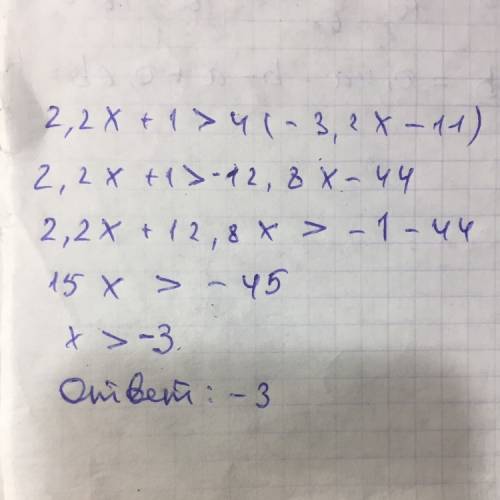 2,2x + 1 > 4 ( - 3,2x - 11)
2,2x + 1 > -12,8x - 44
2,2x + 12,8x > -1 - 44
15x > - 45
x > -3.
Ответ: -3